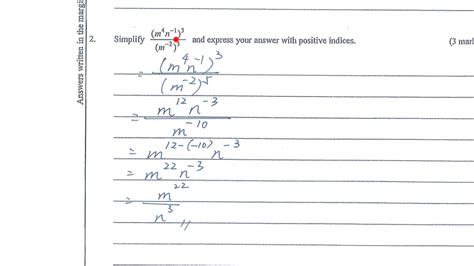 Answers written in the margi
2. Simplify (m⁴n⁻¹)³/(m⁻²)⁵ and express your answer with positive indices. (3 marl
= (m⁴n⁻¹)³/(m⁻²)⁵
= m¹²n⁻³/m⁻¹⁰
= m¹²⁻⁽⁻¹⁰⁾n⁻³
= m²²n⁻³
= m²²/n³ //